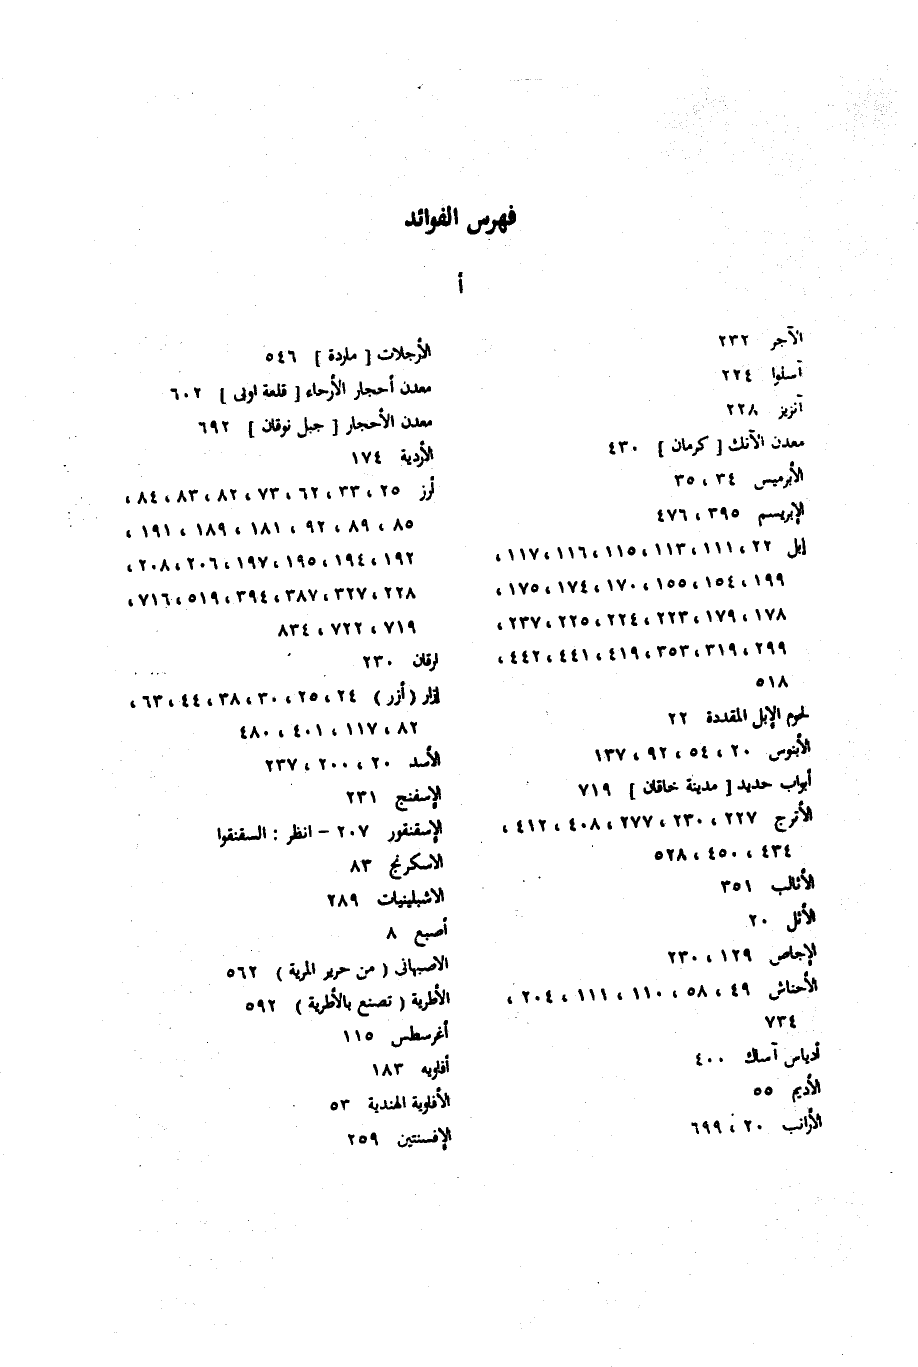 فهرس الفوائد
أ
الآجر ٢٣٢
آسلوا ٢٢٤
آنزيز ٢٢٨
معدن الآنك [ كرمان ] ٤٣٠
الأبرميس ٣٤ ، ٣٥
الإبريسم ٣٩٥ ، ٤٧٦
إبل ٢٢ ، ١١١ ، ١١٣ ، ١١٥ ، ١١٦ ، ١١٧ ،
١٩٩ ، ١٥٤ ، ١٥٥ ، ١٧٠ ، ١٧٤ ، ١٧٥ ،
١٧٨ ، ١٧٩ ، ٢٢٣ ، ٢٢٤ ، ٢٢٥ ، ٢٣٧ ،
٢٩٩ ، ٣١٩ ، ٣٥٣ ، ٤١٩ ، ٤٤١ ، ٤٤٢ ،
٥١٨
لحوم الإبل المقددة ٢٢
الأبنوس ٢٠ ، ٥٤ ، ٩٢ ، ١٣٧
أبواب حديد [ مدينة خاقان ] ٧١٩
الأترج ٢٢٧ ، ٢٣٠ ، ٢٧٧ ، ٤٠٨ ، ٤١٢ ،
٤٣٤ ، ٤٥٠ ، ٥٢٨
الأثالب ٣٥١
الأثل ٢٠
الإجاص ١٢٩ ، ٢٣٠
الأحناش ٤٩ ، ٥٨ ، ١١٠ ، ١١١ ، ٢٠٤ ،
٧٣٤
أدياس آساك ٤٠٠
الأديم ٥٥
الأرانب ٢٠ ، ٦٩٩
الأرجلات [ ماردة ] ٥٤٦
معدن أحجار الأرحاء [ قلعة اوبى ] ٦٠٢
معدن الأحجار [ جبل نوقان ] ٦٩٢
الأردية ١٧٤
أرز ٢٥ ، ٣٣ ، ٦٢ ، ٧٣ ، ٨٢ ، ٨٣ ، ٨٤ ،
٨٥ ، ٨٩ ، ٩٢ ، ١٨١ ، ١٨٩ ، ١٩١ ،
١٩٢ ، ١٩٤ ، ١٩٥ ، ١٩٧ ، ٢٠٦ ، ٢٠٨ ،
٢٢٨ ، ٣٢٧ ، ٣٨٧ ، ٣٩٤ ، ٥١٩ ، ٧١٦ ،
٧١٩ ، ٧٢٢ ، ٨٣٤
ارقان ٢٣٠
إزار ( أزر ) ٢٤ ، ٢٥ ، ٣٠ ، ٣٨ ، ٤٤ ، ٦٣ ،
٨٢ ، ١١٧ ، ٤٠١ ، ٤٨٠
الأسد ٢٠ ، ٢٠٠ ، ٢٣٧
الإسفنج ٢٣١
الإسقنقور ٢٠٧ – انظر : السقنقوا
الاسكرنج ٨٣
الاشبلينيات ٢٨٩
أصبع ٨
الاصبهانى ( من حرير المرية ) ٥٦٢
الأطرية ( تصنع بالأطرية ) ٥٩٢
أغرسطس ١١٥
أفاويه ١٨٣
الأفاوية الهندية ٥٣
الإفسنتين ٢٥٩